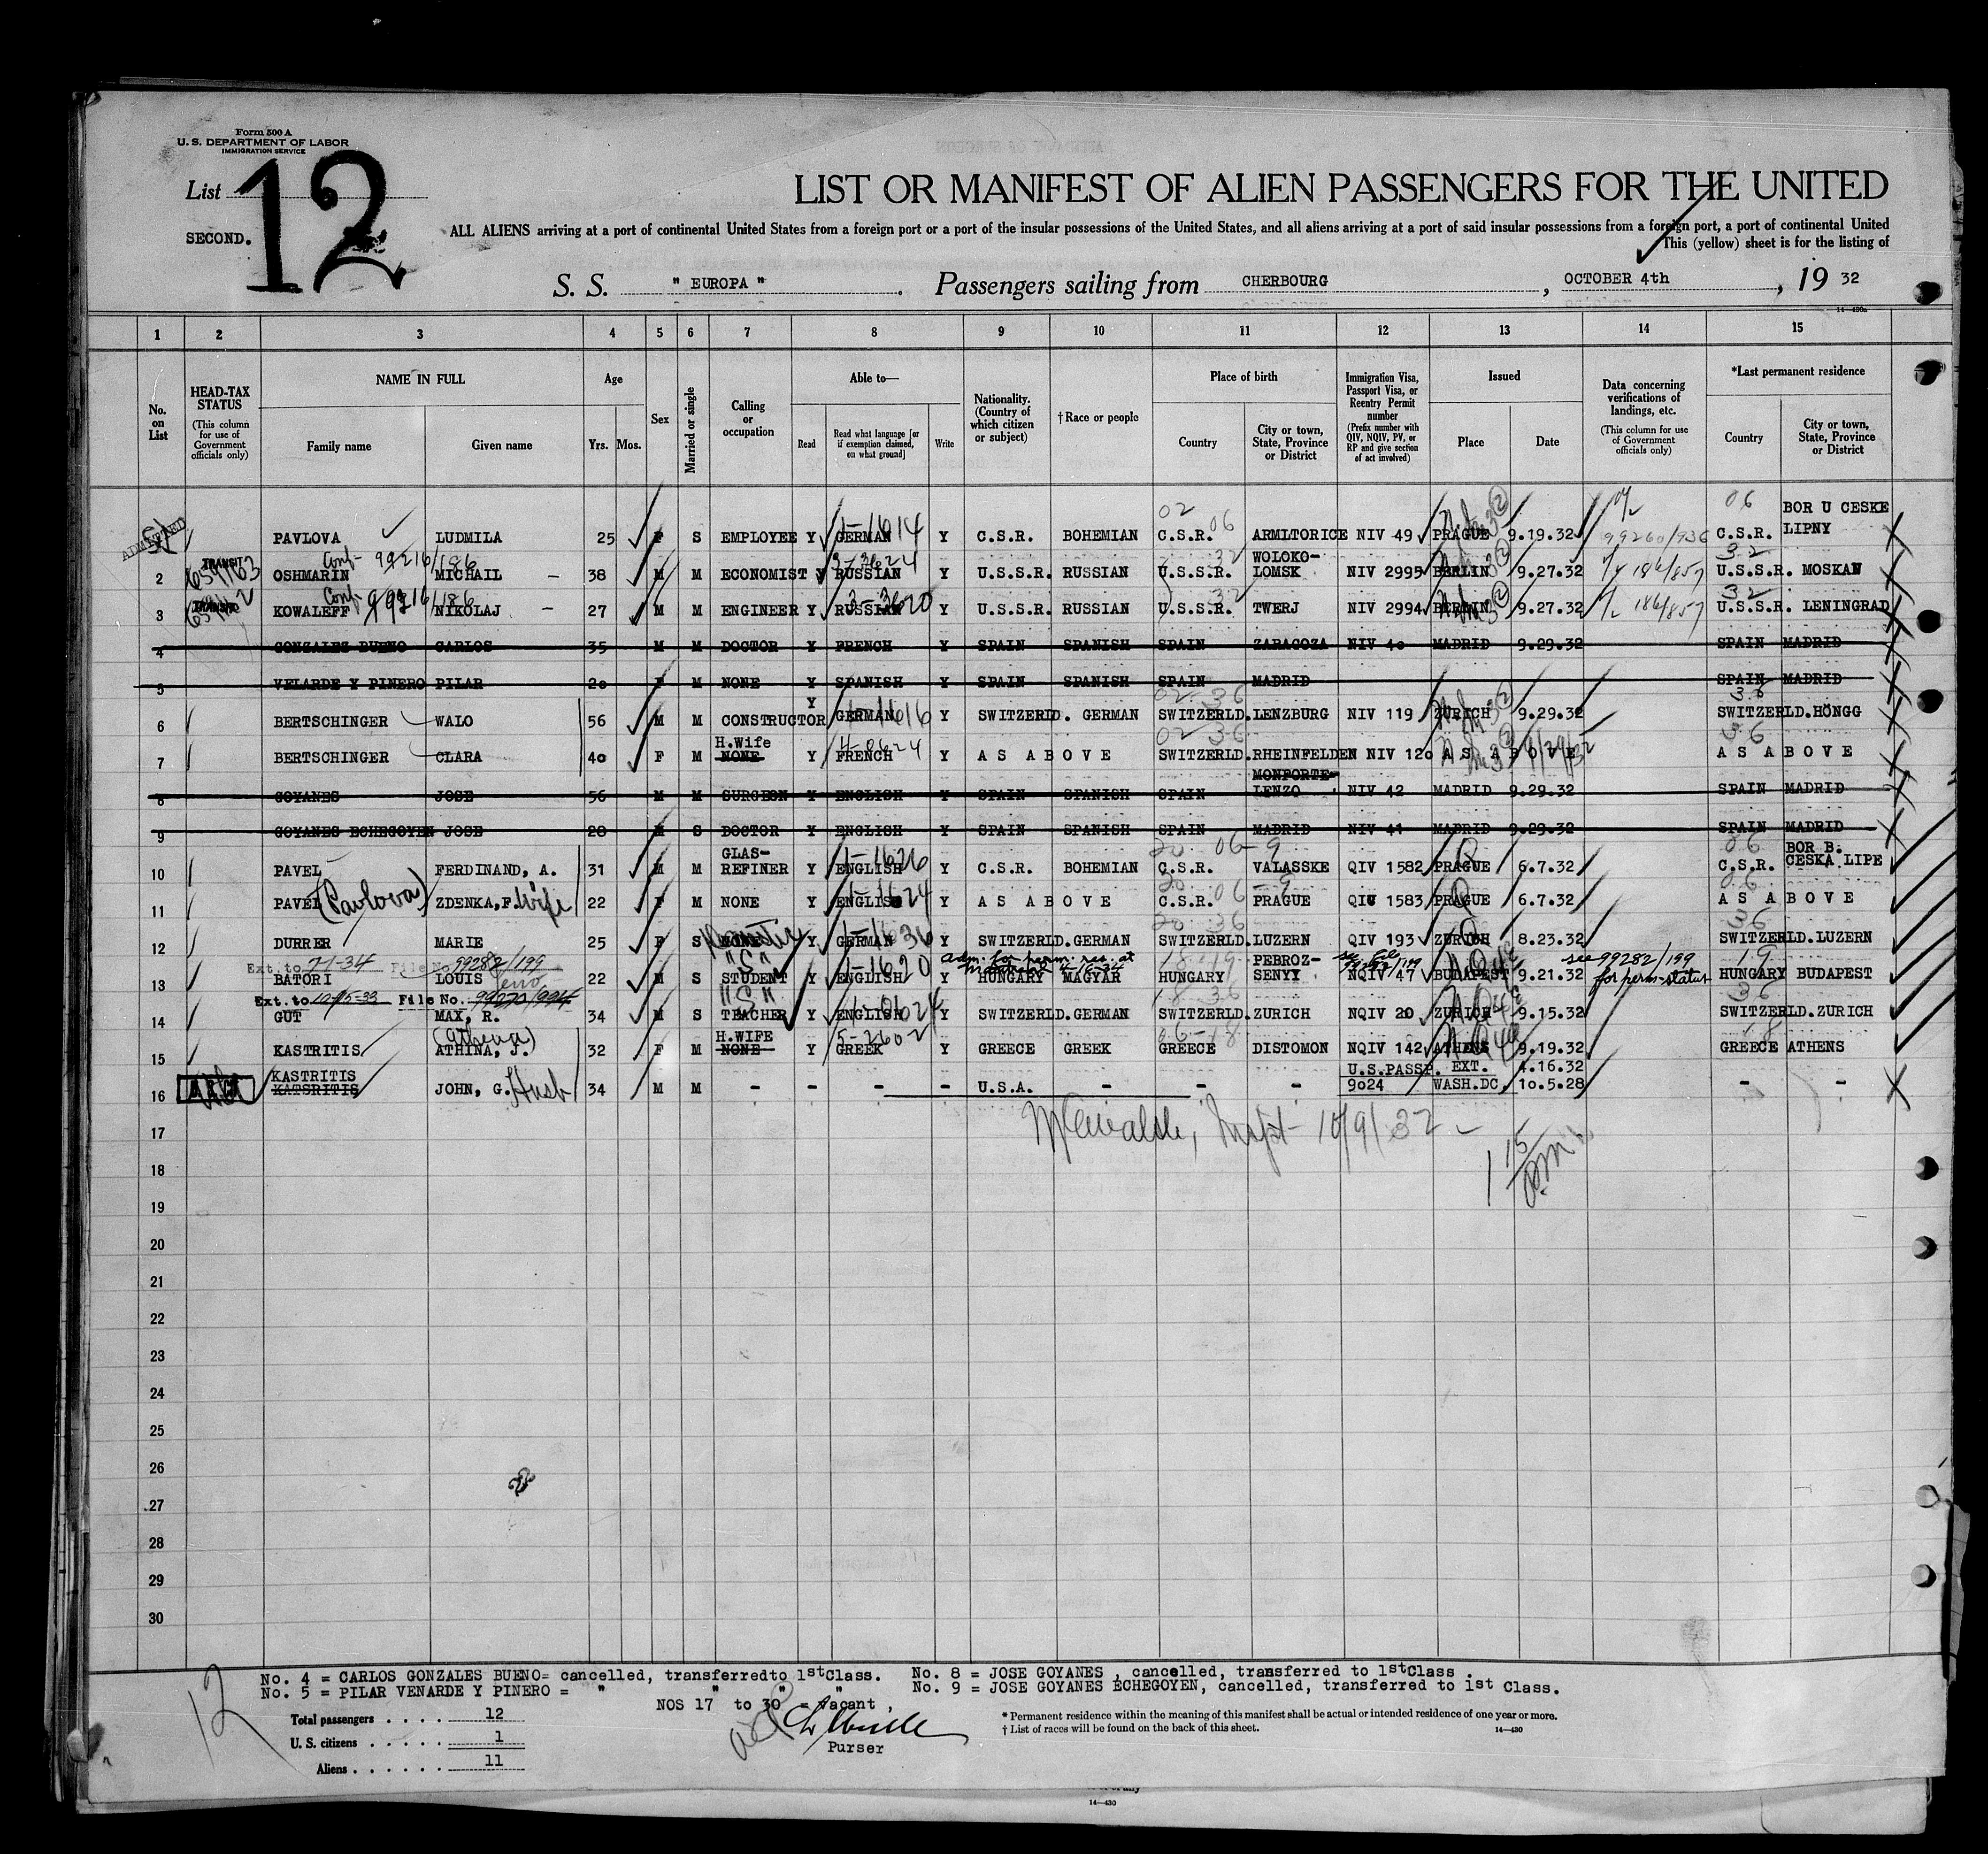 Form 500 A
U. S. DEPARTMENT OF LABOR
IMMIGRATION SERVICE
List 12
SECOND.
LIST OR MANIFEST OF ALIEN PASSENGERS FOR THE UNITED
ALL ALIENS arriving at a port of continental United States from a foreign port or a port of the insular possessions of the United States, and all aliens arriving at a port of said insular possessions from a foreign port, a port of continental United
This (yellow) sheet is for the listing of
S. S. " EUROPA " . Passengers sailing from CHERBOURG , OCTOBER 4th , 19 32
14—430a
1 2 3 4 5 6 7 8 9 10 11 12 13 14 15
No. on List
HEAD-TAX STATUS (This column for use of Government officials only)
NAME IN FULL
Family name
Given name
Age
Yrs. Mos.
Sex
Married or single
Calling or occupation
Able to—
Read
Read what language [or if exemption claimed, on what ground]
Write
Nationality. (Country of which citizen or subject)
† Race or people
Place of birth
Country
City or town, State, Province or District
Immigration Visa, Passport Visa, or Reentry Permit number (Prefix number with QIV, NQIV, PV, or RP and give section of act involved)
Issued
Place
Date
Data concerning verifications of landings, etc. (This column for use of Government officials only)
*Last permanent residence
Country
City or town, State, Province or District
02 06 06 BOR U CESKE
1 ADMITTED PAVLOVA LUDMILA 25 F S EMPLOYEE Y GERMAN 1-1614 Y C.S.R. BOHEMIAN C.S.R. ARMLTORICE NIV 49 PRAGUE 9.19.32 99260/936 C.S.R. LIPNY
Conf- 99216/186 WOLOKO- 32
2 TRANSIT 659163 OSHMARIN MICHAIL — 38 M M ECONOMIST Y RUSSIAN Y U.S.S.R. RUSSIAN U.S.S.R. LOMSK NIV 2995 BERLIN 9.27.32 186/857 U.S.S.R. MOSKAU
Conf- 99216/186 32 32
3 TRANSIT KOWALEFF NIKOLAJ — 27 M M ENGINEER Y RUSSIAN 3-3620 Y U.S.S.R. RUSSIAN U.S.S.R. TWERJ NIV 2994 BERLIN 9.27.32 186/857 U.S.S.R. LENINGRAD
4 GONZALEZ BUENO CARLOS 35 M M DOCTOR Y FRENCH Y SPAIN SPANISH SPAIN ZARAGOZA NIV 40 MADRID 9.29.32 SPAIN MADRID
5 VELARDE Y PINERO PILAR 20 F M NONE Y SPANISH Y SPAIN SPANISH SPAIN MADRID SPAIN MADRID
02 36 36
6 BERTSCHINGER WALO 56 M M CONSTRUCTOR Y GERMAN 1616 Y SWITZERLD. GERMAN SWITZERLD. LENZBURG NIV 119 ZURICH 9.29.32 SWITZERLD. HÖNGG
H.Wife 02 36 36
7 BERTSCHINGER CLARA 40 F M NONE Y FRENCH 4-0624 Y AS ABOVE SWITZERLD. RHEINFELDEN NIV 120 AS ABOVE 9/29/32 AS ABOVE
MONFORTE-
8 GOYANES JOSE 56 M M SURGEON Y ENGLISH Y SPAIN SPANISH SPAIN LENZO NIV 42 MADRID 9.29.32 SPAIN MADRID
9 GOYANES ECHEGOYEN JOSE 28 M S DOCTOR Y ENGLISH Y SPAIN SPANISH SPAIN MADRID NIV 41 MADRID 9.29.32 SPAIN MADRID
GLAS- 20 06-9 06 BOR B.
10 PAVEL FERDINAND, A. 31 M M REFINER Y ENGLISH 1-1626 Y C.S.R. BOHEMIAN C.S.R. VALASSKE QIV 1582 PRAGUE 6.7.32 C.S.R. CESKA LIPE
11 PAVEL (Pavlova) ZDENKA, F. Wife 22 F M NONE Y ENGLISH 1-1624 Y AS ABOVE C.S.R. 06-9 PRAGUE QIV 1583 PRAGUE 6.7.32 AS ABOVE
20 36 36
12 DURRER MARIE 25 F S NONE Domestic Y GERMAN 1-1636 Y SWITZERLD. GERMAN SWITZERLD. LUZERN QIV 193 ZURICH 8.23.32 SWITZERLD. LUZERN
Ext. to 7-1-34 File No. 99282/199 "S" adm. for perm. res. at 18-19 PEBROZ- see 99282/199 19
13 BATORI LOUIS 22 M S STUDENT Y ENGLISH 1-1620 Y HUNGARY MAGYAR HUNGARY SENYY NQIV 47 BUDAPEST 9.21.32 for perm-status HUNGARY BUDAPEST
Ext. to 10-15-33 File No. 99270/994 "S" 18 36 36
14 GUT MAX, R. 34 M S TEACHER Y ENGLISH 1-0624 Y SWITZERLD. GERMAN SWITZERLD. ZURICH NQIV 20 ZURICH 9.15.32 SWITZERLD. ZURICH
(Athena) H.WIFE 5-2602 06-18 18
15 KASTRITIS ATHINA, J. 32 F M NONE Y GREEK Y GREECE GREEK GREECE DISTOMON NQIV 142 ATHENS 9.19.32 GREECE ATHENS
KASTRITIS U.S.PASSP. EXT. 4.16.32
16 KATSRITIS JOHN, G. Husb 34 M M - - - U.S.A. - - - 9024 WASH.DC. 10.5.28 - -
Inspt- 10/9/32
1 15 PM
17
18
19
20
21
22
23
24
25
26
27
28
29
30
No. 4 = CARLOS GONZALES BUENO= cancelled, transferredto 1st Class. No. 8 = JOSE GOYANES , cancelled, transferred to 1st Class .
No. 5 = PILAR VENARDE Y PINERO = " " " " No. 9 = JOSE GOYANES ECHEGOYEN, cancelled, transferred to 1st Class.
NOS 17 to 30 = vacant ,
12
Total passengers . . . . 12
U. S. citizens . . . . . 1
Aliens . . . . . . 11
Purser
* Permanent residence within the meaning of this manifest shall be actual or intended residence of one year or more.
† List of races will be found on the back of this sheet. 14—430
14—430